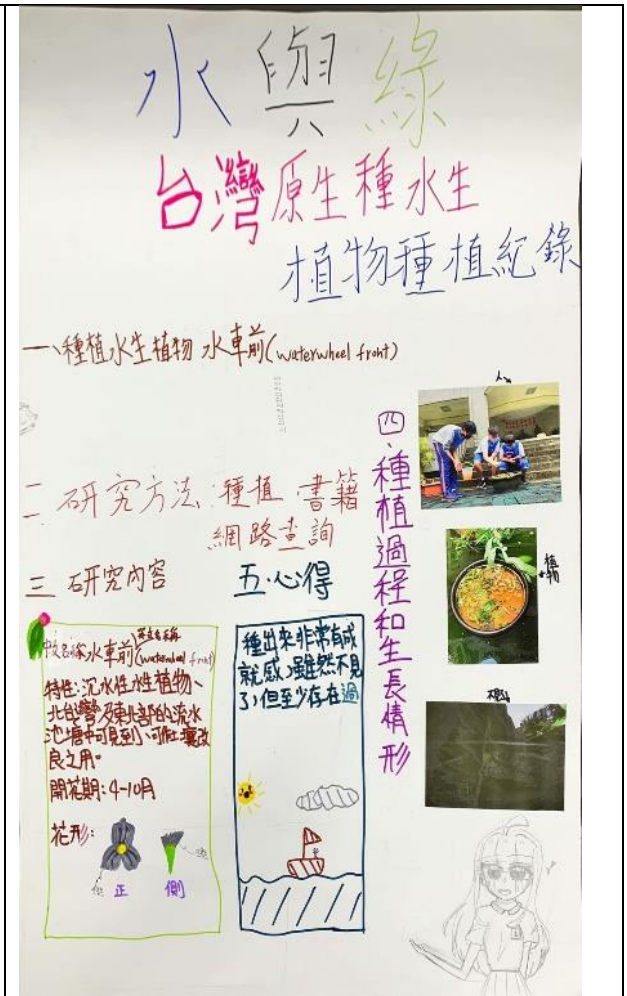 水與綠
台灣原生種水生
植物種植紀錄
一、種植水生植物 水車前(waterwheel front)
二 研究方法:種植 書籍
網路查詢
三 研究內容
英文名稱
水車前(waterwheel front)
特性:沉水性水生植物、
北台灣及東北部的流水
池塘中可見到、可做土壤改
良之用。
開花期:4-10月
花形:
正
側
五.心得
種出來非常有成
就感,雖然不見
了,但至少存在過
四.種植過程和生長情形
人
植物